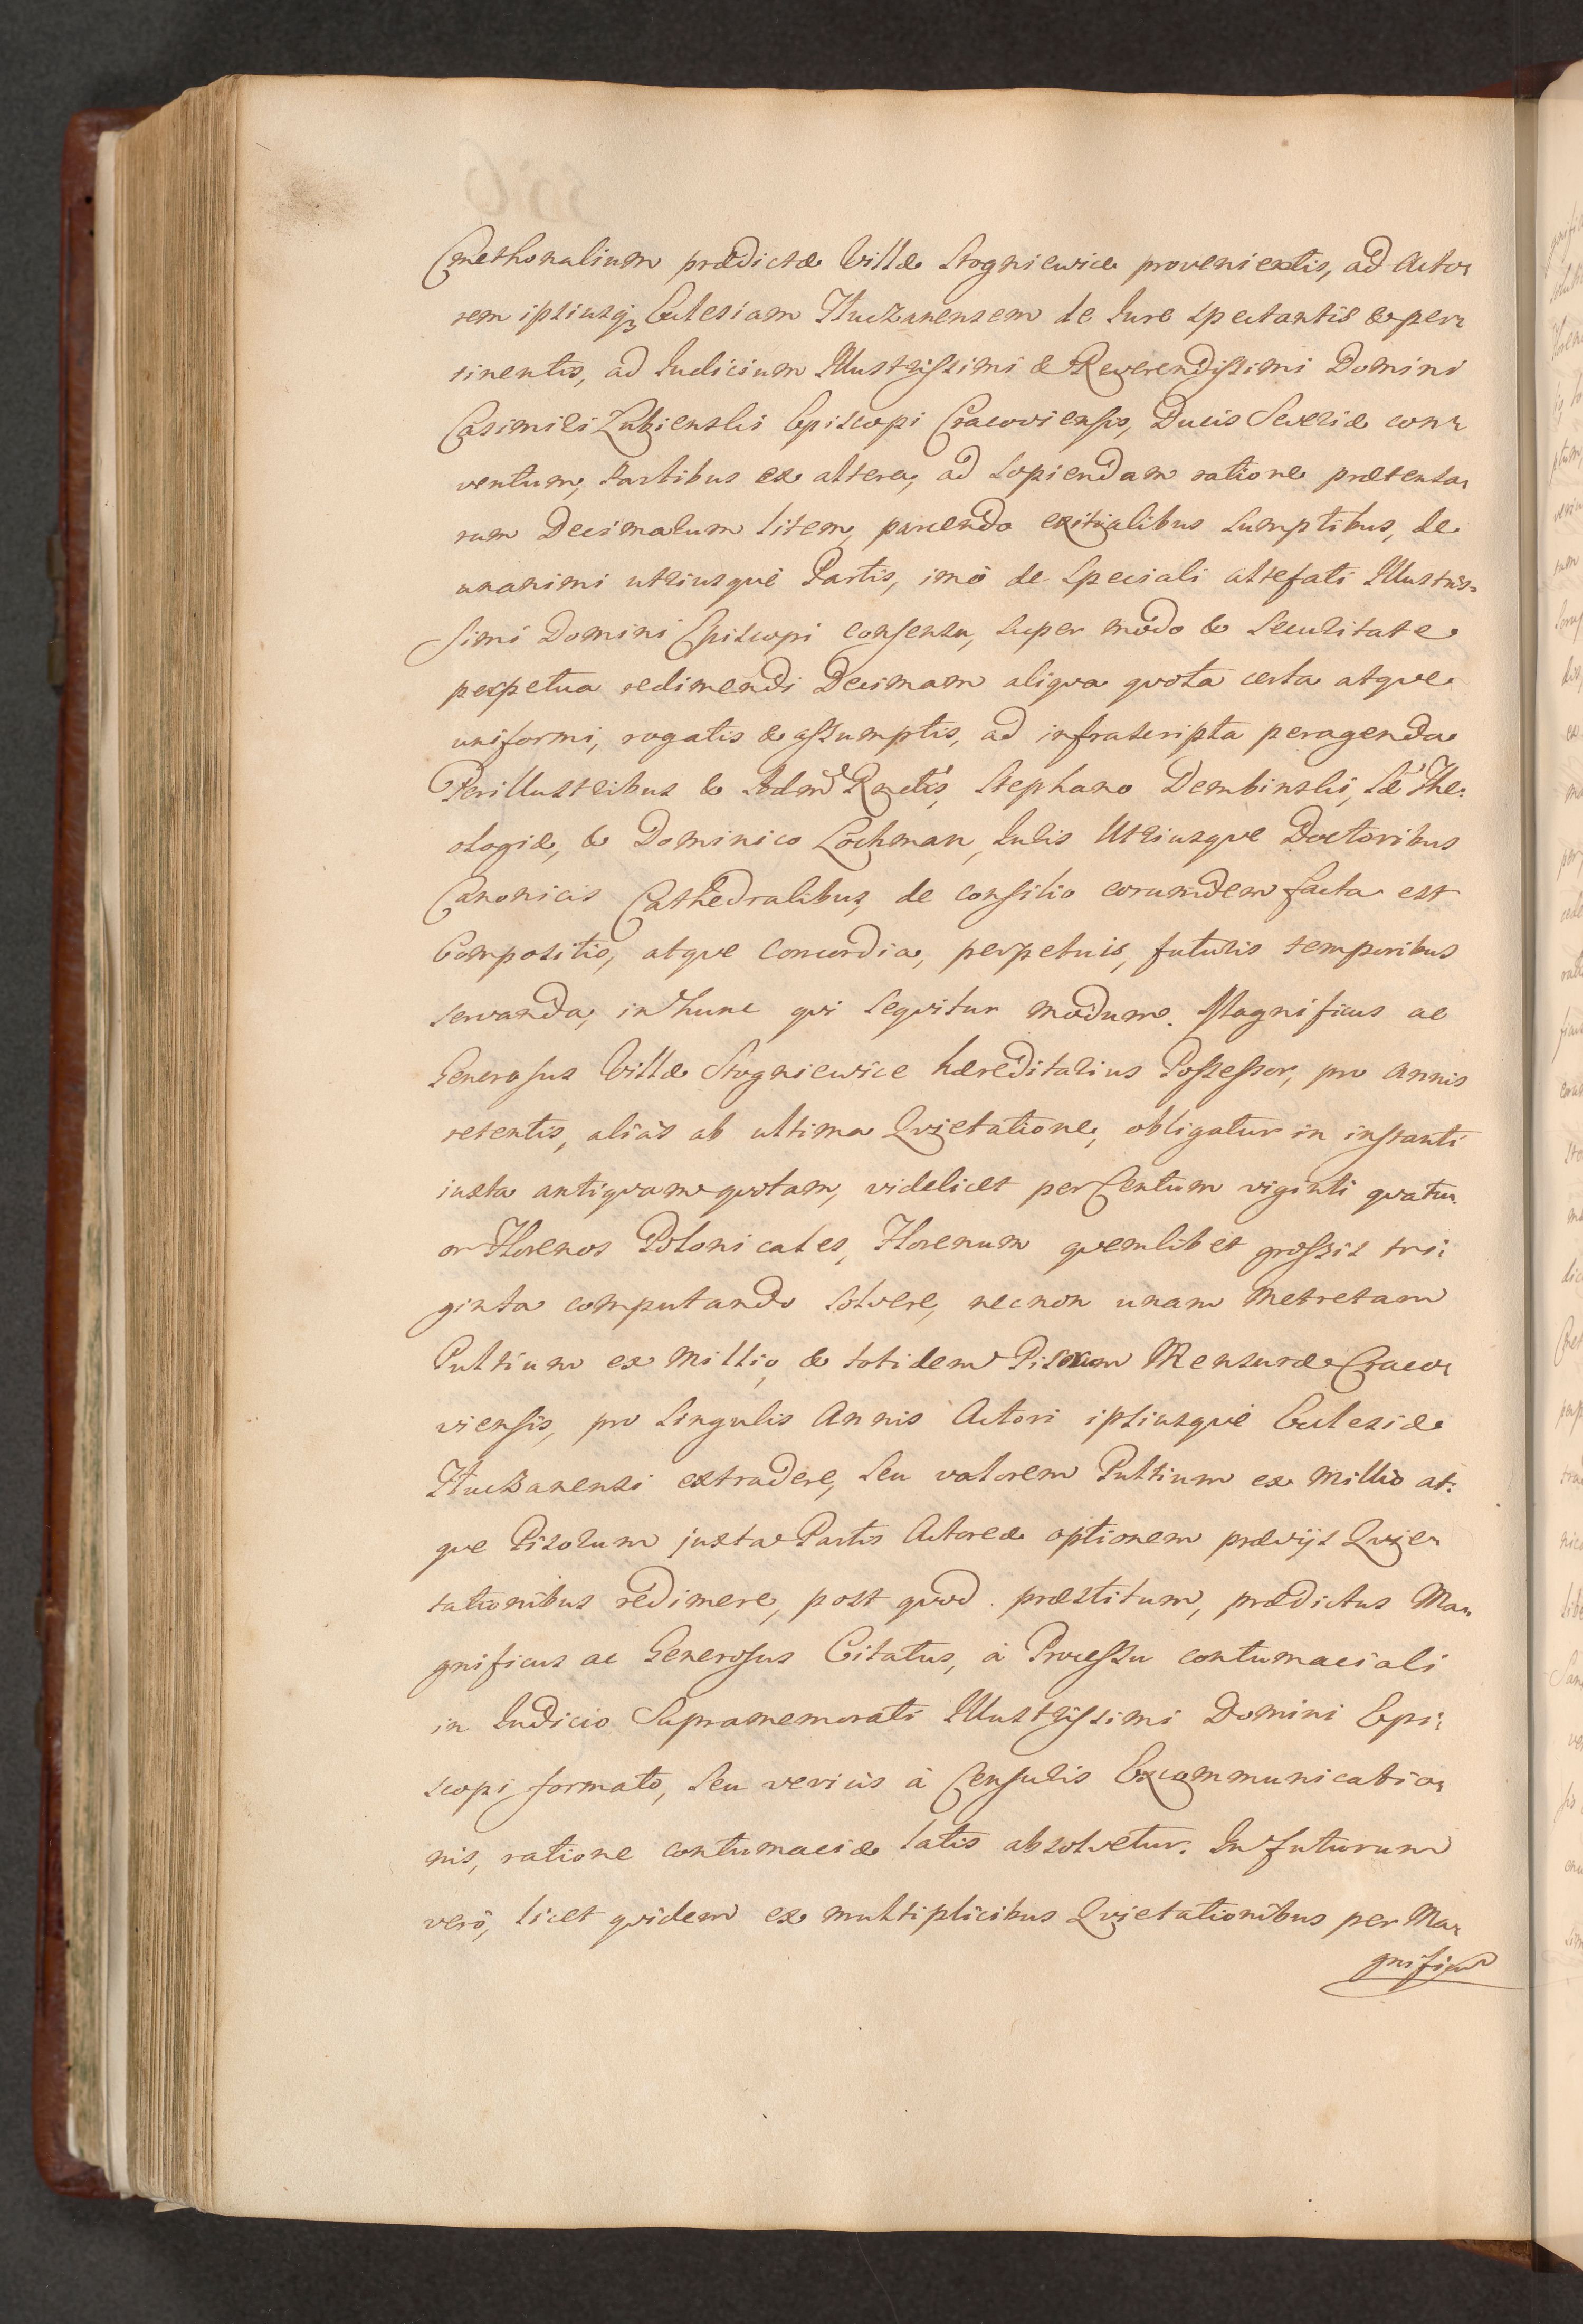 Cmethonalium prædictæ Villæ Stogniewice provenientis, ad Acto-
rem ipsiusq; Ecclesiam Huczanensem de Iure spectantis & per-
tinentis, ad Iudicium Illustrissimi & Reverendissimi Domini
Casimiri Łubienski Episcopi Cracoviensis, Ducis Severiæ con-
ventum, Partibus ex altera, ad sopiendam ratione prætensa-
rum Decimalum litem, parcendo exitialibus sumptibus, de
unanimi utriusquè Partis, imò de speciali attefati Illustris-
simi Domini Episcopi consensu, super modo & securitate
perpetua redimendi Decimam aliqva qvota certa atqve
uniformi, rogatis & assumptis, ad infrascripta peragenda
Perillustribus & Admd Rndis, Stephano Dembinski, Sæ The-
ologiæ, & Dominico Lochman, Iuris Utriusqve Doctoribus
Canonicis Cathedralibus, de consilio eorumdem facta est
Compositio, atqve concordia, perpetuis, futuris temporibus
servanda, in hunc qvi seqvitur modum. Magnificus ac
Generosus Villæ Stogniewice hæreditarius Possessor, pro annis
retentis, aliàs ab ultima Qvietatione, obligatur in instanti
iuxta antiqvam qvotam, videlicet per Centum viginti qvatu-
or Florenos Polonicales, Florenum qvemlibet grossis tri-
ginta computando solvere, necnon unam metretam
Pultium ex Millio, & totidem Pisorum Mensuræ Craco-
viensis, pro singulis Annis Actori ipsiusquè Ecclesiæ
Huczanensi extradere, seu valorem Pultium ex Millio at-
qve Pisorum juxta Partis Actoreæ optionem prævijs Qvie-
tationibus redimere, post qvod præstitum, prædictus Ma-
gnificus ac Generosus Citatus, à Processu contumaciali
in Iudicio Supramemorati Illustrissimi Domini Epi-
scopi formato, seu veriùs à Censuris Excommunicatio-
nis, ratione contumaciæ latis absolvetur. In futurum
verò, licet qvidem ex multiplicibus Qvietationibus per Ma-
gnificum